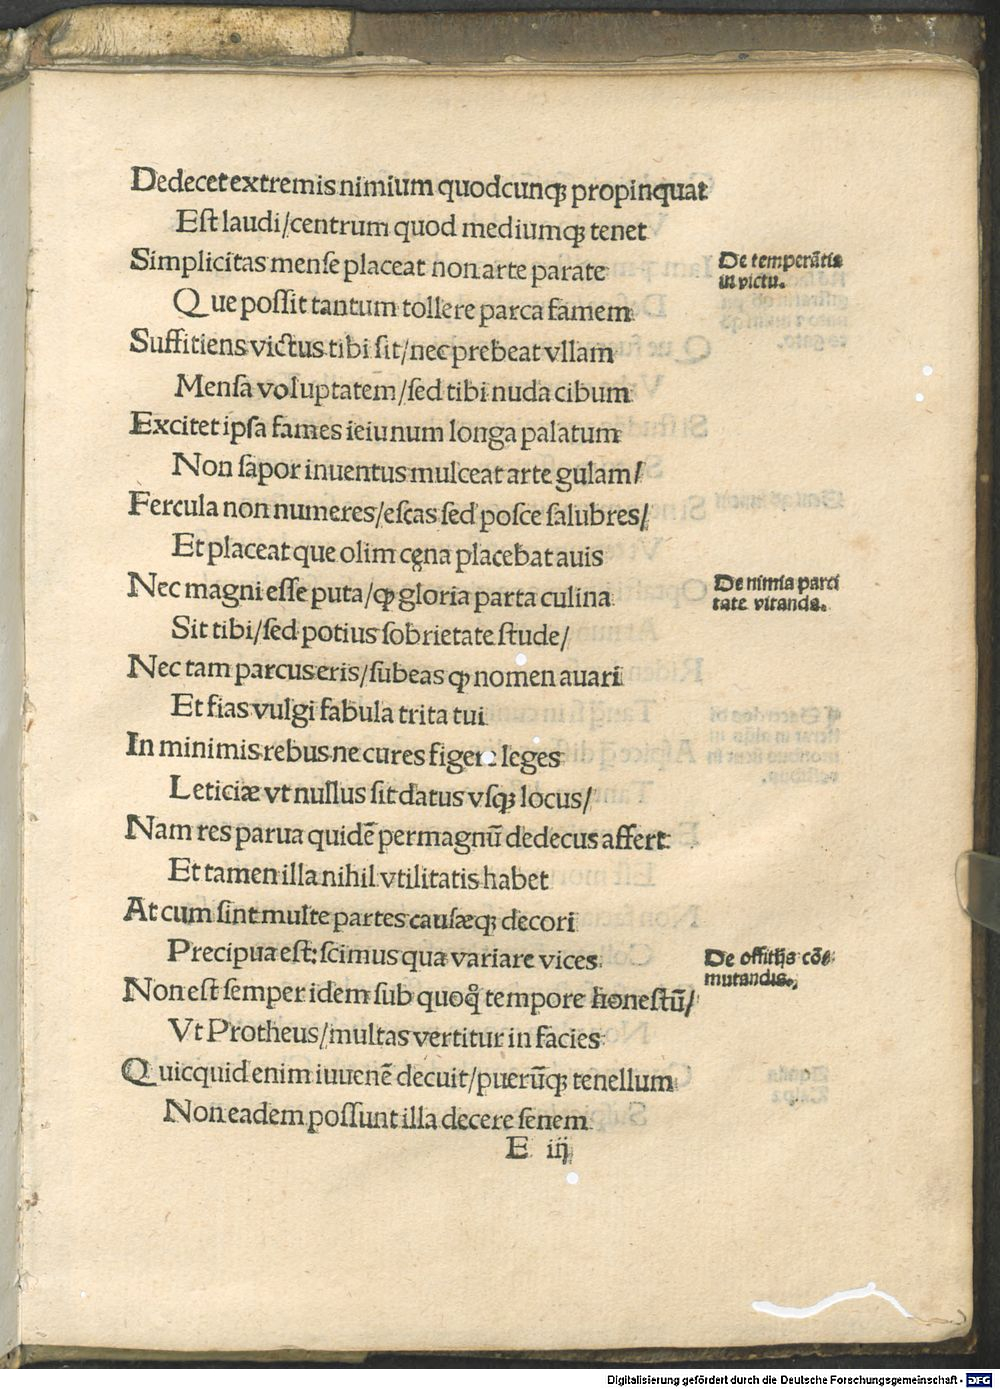 Dedecet extremis nimium quodcunqꝫ propinquat
Est laudi/centrum quod mediumqꝫ tenet
Simplicitas mense placeat non arte parate
De temperātia
in victu.
Que possit tantum tollere parca famem
Suffitiens victus tibi sit/nec prebeat vllam
Mensa voluptatem/sed tibi nuda cibum
Excitet ipsa fames ieiunum longa palatum
Non sapor inuentus mulceat arte gulam/
Fercula non numeres/escas sed posce salubres/
Et placeat que olim cęna placebat auis
Nec magni esse puta/ꝙ gloria parta culina
De nimia parci
tate vitanda.
Sit tibi/sed potius sobrietate stude/
Nec tam parcus eris/subeas ꝙ nomen auari
Et fias vulgi fabula trita tui
In minimis rebus ne cures figere leges
Leticiæ vt nullus sit datus vsqꝫ locus/
Nam res parua quidē permagnū dedecus affert
Et tamen illa nihil vtilitatis habet
At cum sint multe partes causæqꝫ decori
Precipua est: scimus qua variare vices
De offitijs cōe
mutandis.
Non est semper idem sub quoqͦ tempore honestū/
Vt Protheus/multas vertitur in facies
Quicquid enim iuuenē decuit/puerūqꝫ tenellum
Non eadem possunt illa decere senem
E iij
Digitalisierung gefördert durch die Deutsche Forschungsgemeinschaft - DFG